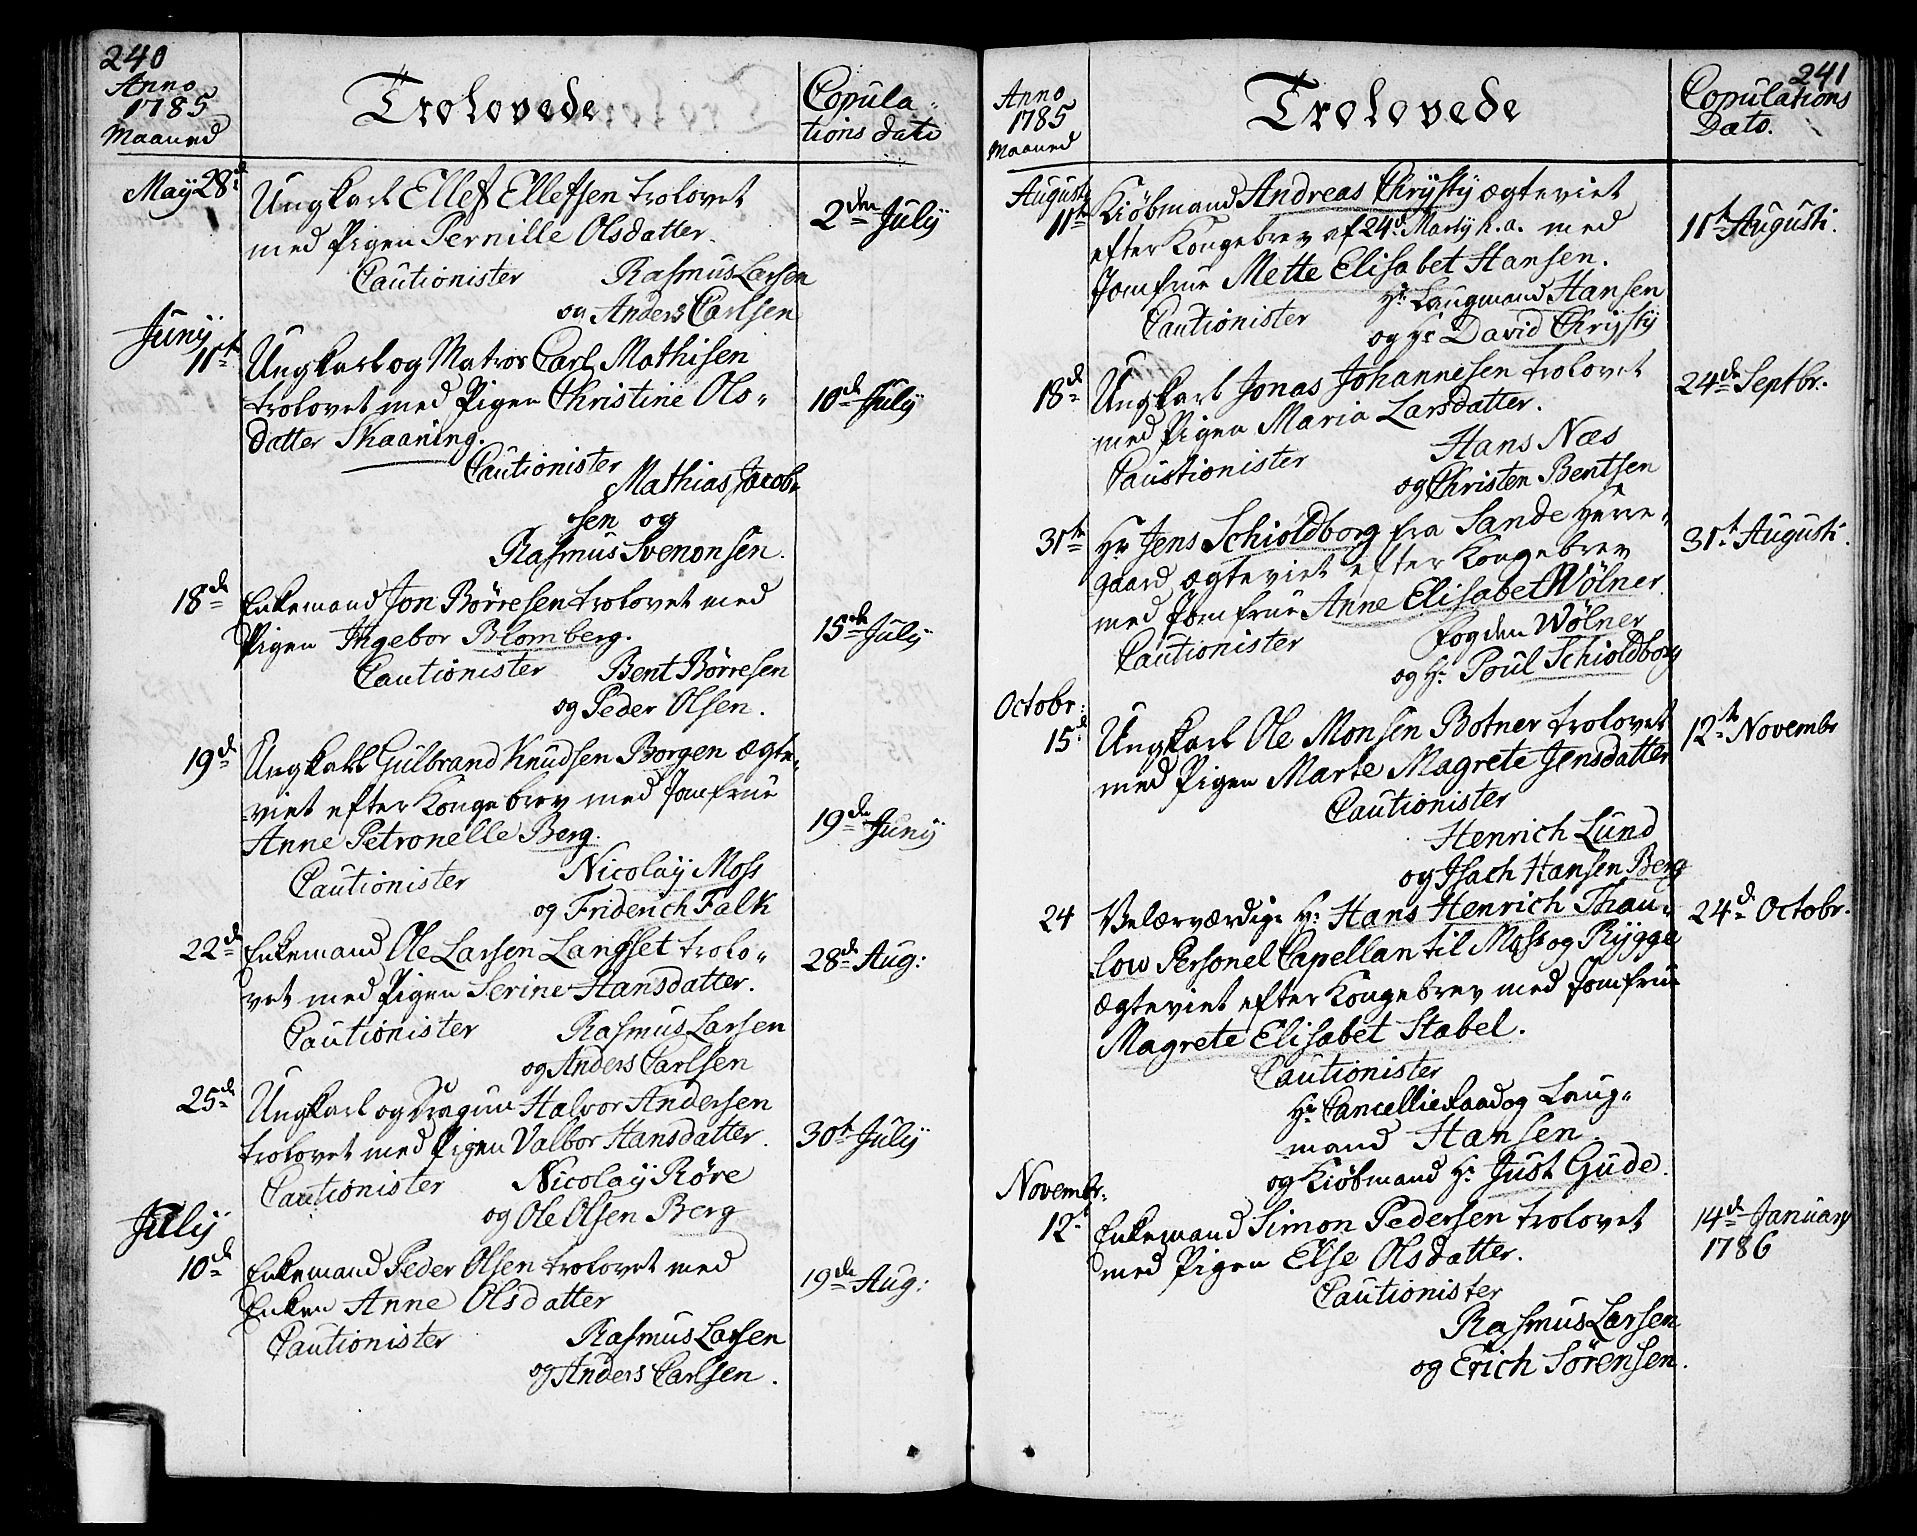 240
Anno
1785
Maaned
Trolovede
Copula-
tions dato
May 28de
Ungkarl Ellef Ellefsen trolovet
med Pigen Pernille Olsdatter.
2den July
Cautionister Rasmus Larsen
og Anders Carlsen
Juny
11te
Ungkarl og Matros Carl Mathisen
trolovet med Pigen Christine Ols-
datter Skaaning.
10de July
Cautionister
Mathias Jacob-
sen og
Rasmus Svenonsen.
18de
Enkemand Jon Börresen trolovet med
Pigen Ingebor Blomberg.
15de July
Cautionister Bent Börresen
og Peder Olsen.
19de
Ungkarl Gulbrand Knudsen Borgen ægte-
viet efter Kongebrev med Jomfrue
Anne Petronelle Berg.
19de Juny
Cautionister Nicolay Moss
og Friderich Falk
22de
Enkemand Ole Larsen Langset trolo-
vet med Pigen Serine Hansdatter.
28de Aug:
Cautionister Rasmus Larsen
og Anders Carlsen
25de
Ungkarl og Dragun Halvor Andersen
trolovet med Pigen Valbor Hansdatter.
30te July
Cautionister Nicolay Röre
og Ole Olsen Berg
July
10de
Enkemand Peder Olsen trolovet med
Enken Anne Olsdatter
19de Aug:
Cautionister Rasmus Larsen
og Anders Carlsen.
241
Anno
1785
Maaned
Trolovede
Copulations
Dato.
Augusti
11te
Kiöbmand Andreas Chrysty ægteviet
efter Kongebrev af 24de Marty h. a. med
Jomfrue Mette Elisabet Hansen.
11te Augusti.
Cautionister Hr. Laugmand Hansen
og Hr David Chrysty
18de
Ungkarl Jonas Johannesen trolovet
med Pigen Maria Larsdatter.
24de Septbr.
Cautionister Hans Næs
og Christen Bentsen
31te
Hr Jens Schioldborg fra Sande Herre-
gaard ægteviet efter Kongebrev
med Jomfrue Anne Elisabet Wölner
31te Augusti.
Cautionister Fogden Wölner
og Hr. Poul Schioldborg
Octobr:
15de
Ungkarl Ole Monsen Botner trolovet
med Pigen Marte Magrete Jensdatter
12te Novembr
Cautionister
Henrich Lund
og Isach Hansen Berg
24
Velærværdige Hr. Hans Henrich Thau-
low Personel Capellan til Moss og Rygge
ægteviet efter Kongebrev med Jomfrue
Magrete Elisabet Stabel.
24de Octobr.
Cautionister
Hr. Cancellieraad og Laug-
mand Hansen
og Kiöbmand Hr. Just Gude.
Novembr:
12te
Enkemand Simon Pedersen trolovet
med Pigen Else Olsdatter.
14de January
1786
Cautionister
Rasmus Larsen
og Erich Sörensen.